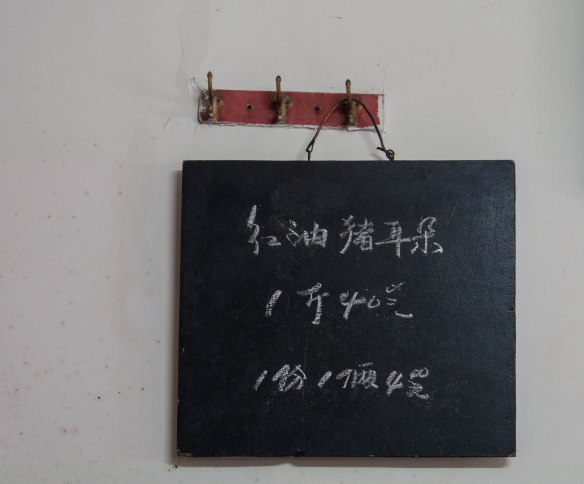 红油猪耳朵
1斤40元
1份1俩4元